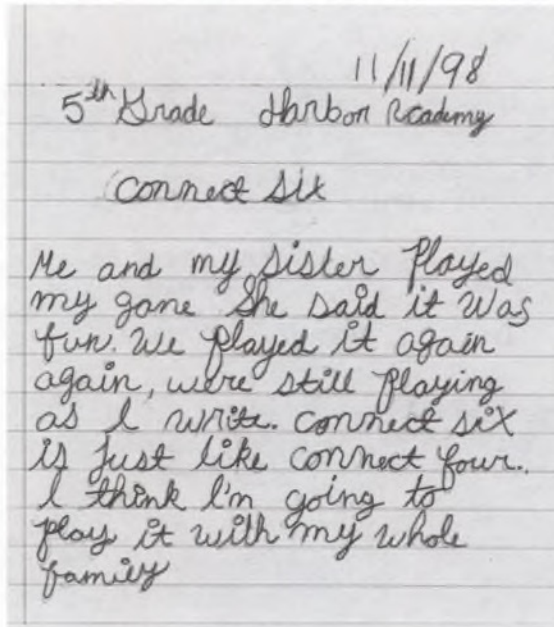 11/11/98
5th Grade Harbor Academy
Connect Six
Me and my sister played
my game She said it was
fun. We played it again
again, were still playing
as I write. Connect six
is just like connect four.
I think I'm going to
play it with my whole
family